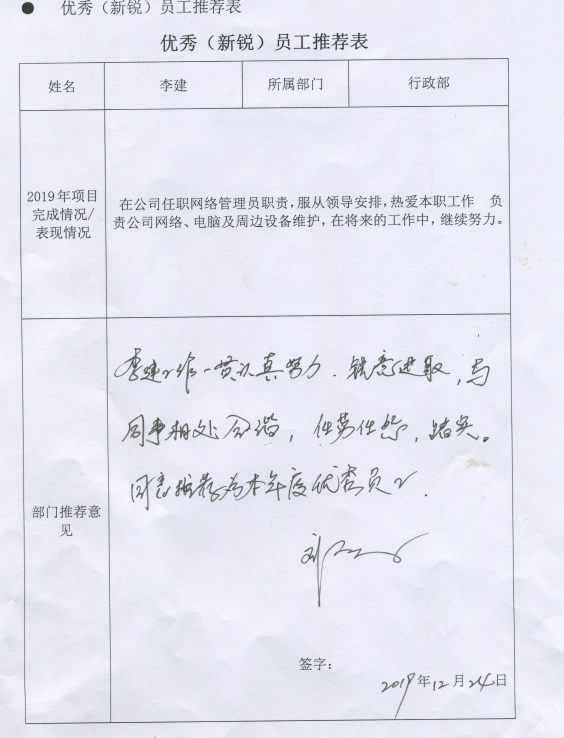 ● 优秀（新锐）员工推荐表
优秀（新锐）员工推荐表
姓名 李建 所属部门 行政部
2019年项目
完成情况/
表现情况
在公司任职网络管理员职责，服从领导安排，热爱本职工作 负
责公司网络、电脑及周边设备维护，在将来的工作中，继续努力。
部门推荐意
见
李建工作一贯认真努力．锐意进取，与
同事相处和谐，任劳任怨，踏实。
同意推荐为本年度优秀员工．
签字：
2019年12月24日